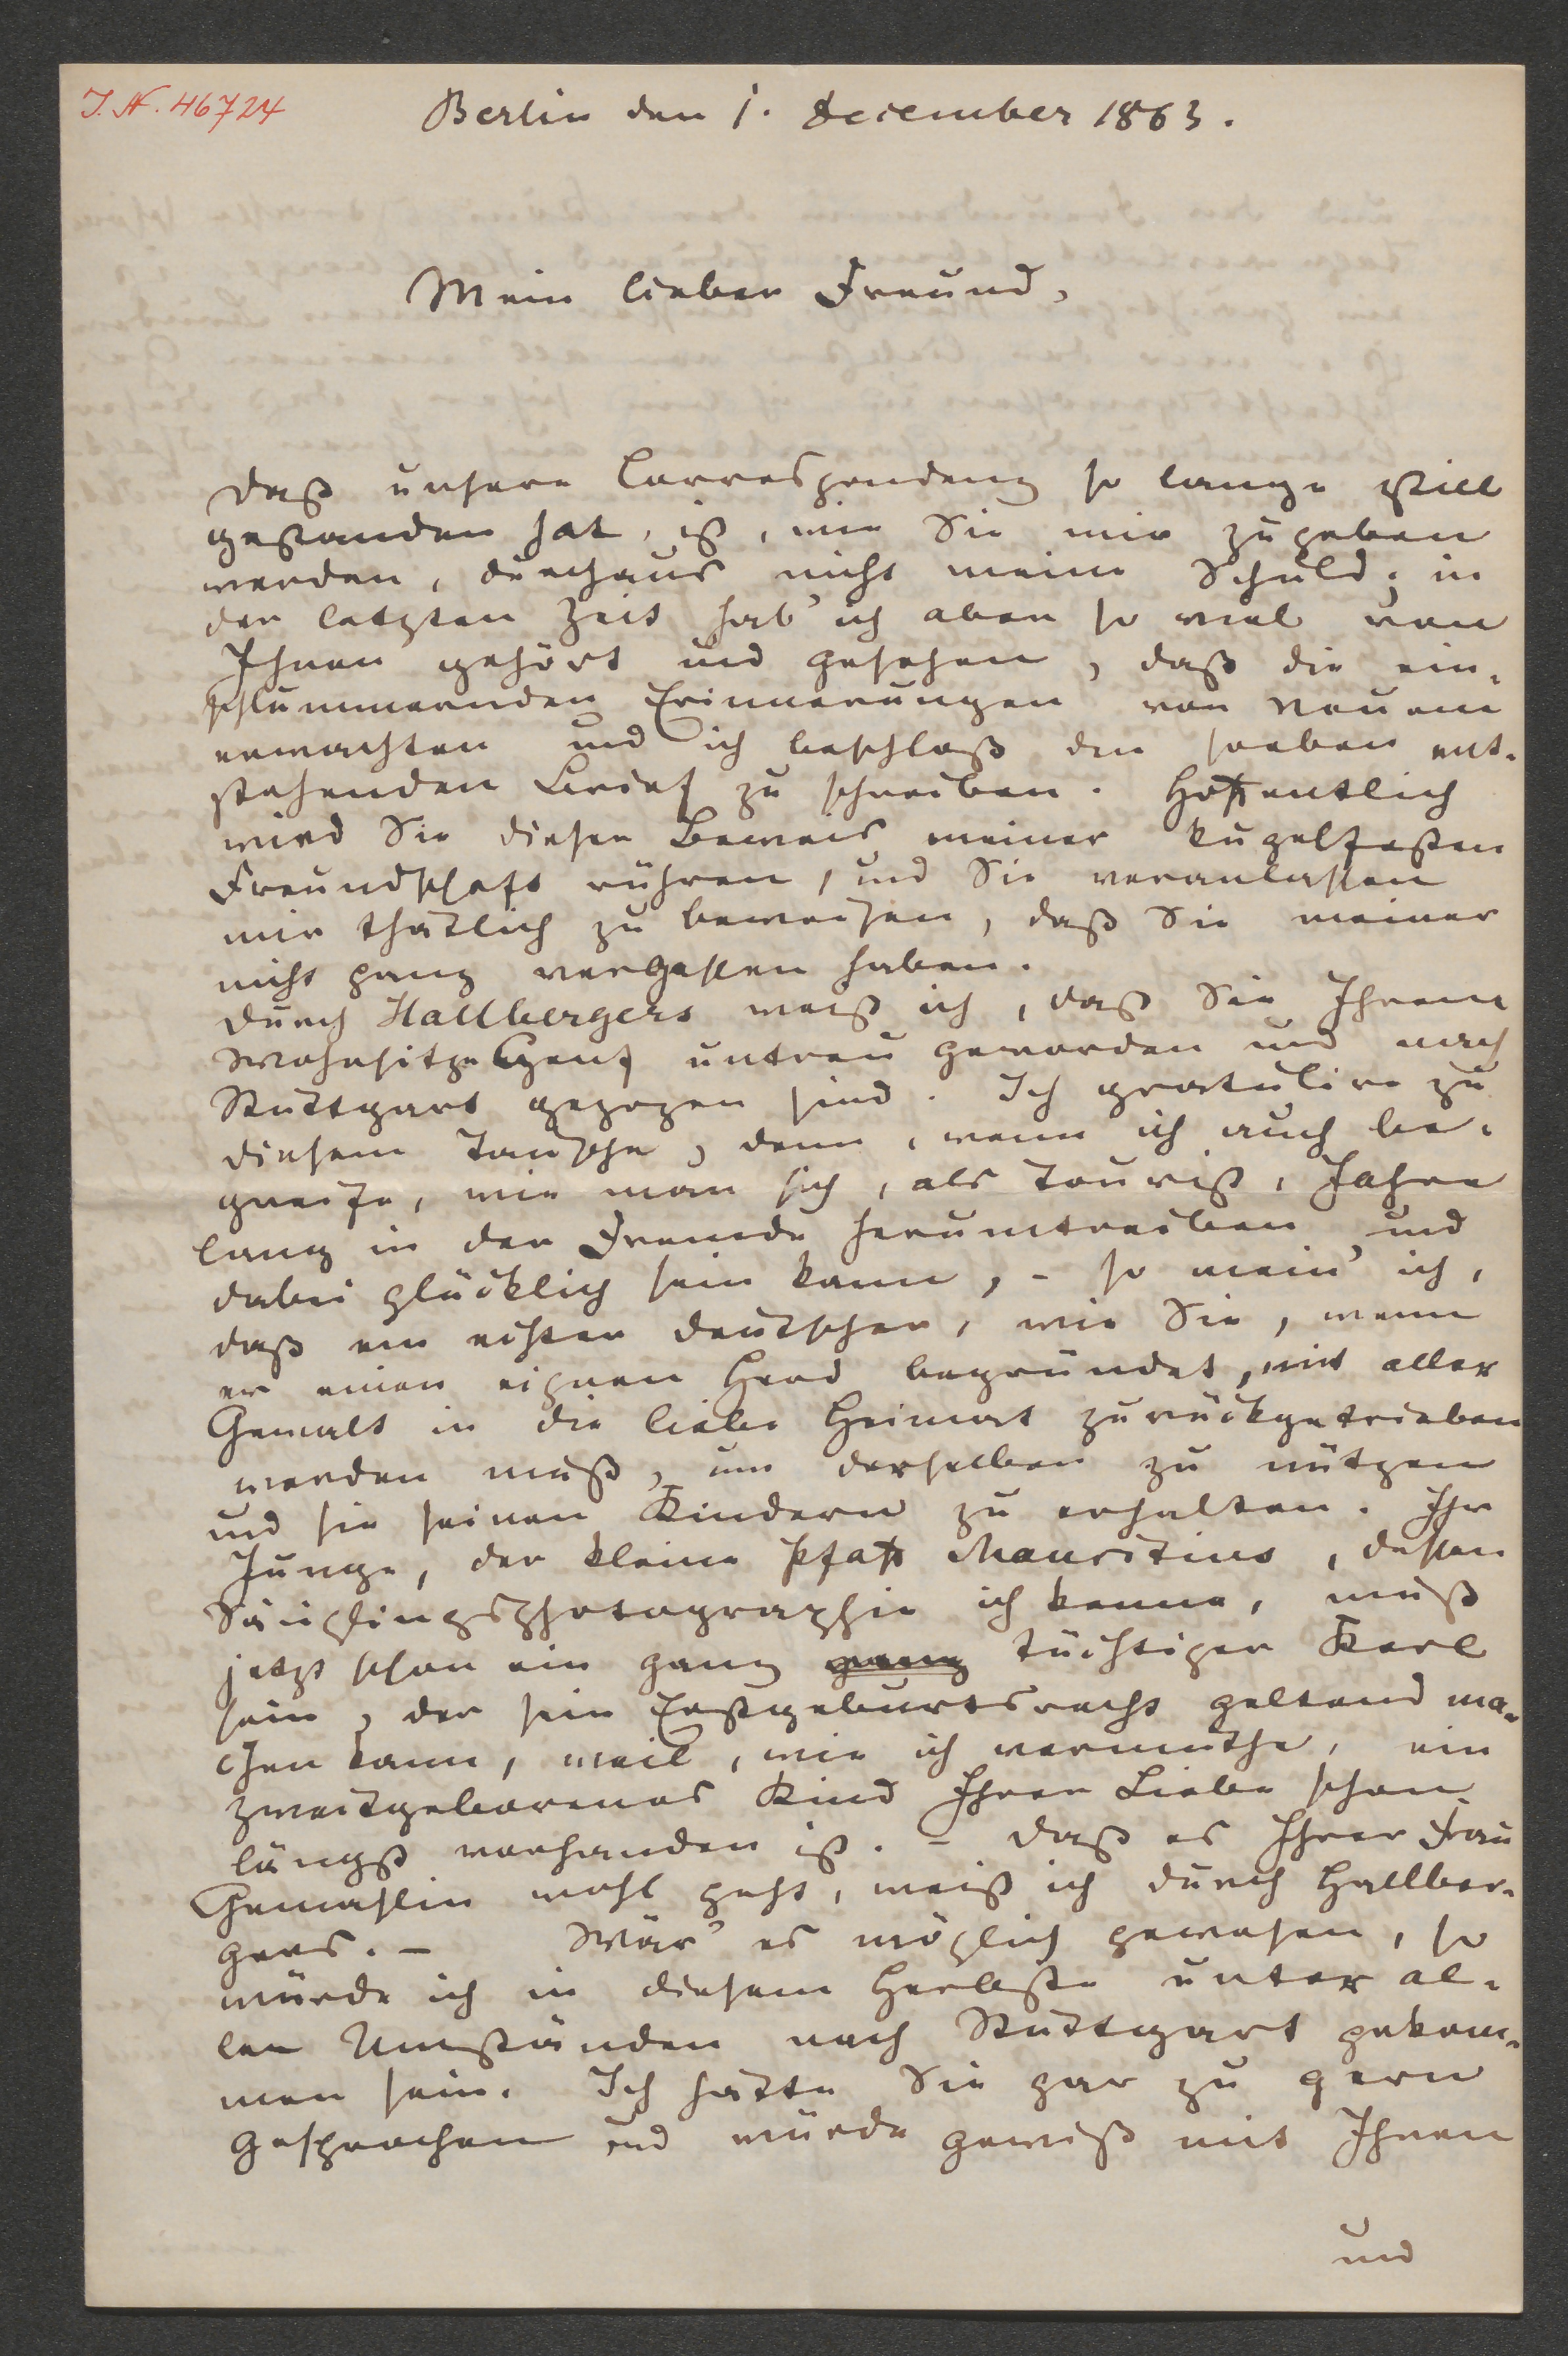 J. N. 46724
Berlin den 1. December 1863.
Mein lieber Freund,
Daß unsere Correspondenz so lange still
gestanden hat, ist, wie Sie mir zugeben
werden, durchaus nicht meine Schuld; in
der letzten Zeit hab' ich aber so viel von
Ihnen gehört und gesehen, daß die ein-
schlummernden Erinnerungen von Neuem
erwachten und ich beschloß den soeben ent-
stehenden Brief zu schreiben. Hoffentlich
wird Sie dieser Beweis meiner kugelfesten
Freundschaft rühren, und Sie veranlassen
mir thätlich zu beweisen, daß Sie meiner
nicht ganz vergessen haben.
Durch Hallbergers weiß ich, daß Sie Ihrem
Wohnsitze Genf untreu geworden und nach
Stuttgart gezogen sind. Ich gratulire zu
diesem Tausche, denn, wenn ich auch be-
greife, wie man sich, als Tourist, Jahre
lang in der Fremde herumtreiben und
dabei glücklich sein kann, - so mein' ich,
daß ein echter Deutscher, wie Sie, wenn
er einen eignen Herd begründet, mit aller
Gewalt in die liebe Heimat zurückgetrieben
werden muß, um derselben zu nützen
und sie seinen Kindern zu erhalten. Ihr
Junge, der kleine Pfaff Mauritius, dessen
Säuglingsphotographie ich kenne, muß
jetzt schon ein ganz ganz tüchtiger Kerl
sein, der sein Erstgeburtsrecht geltend ma-
chen kann, weil, wie ich vermuthe, ein
zweitgeborenes Kind Ihrer Liebe schon
längst vorhanden ist. - Daß es Ihrer Frau
Gemahlin wohl geht, weiß ich durch Hallber-
gers. - Wär' es möglich gewesen, so
würde ich in diesem Herbste unter al-
len Umständen nach Stuttgart gekom-
men sein. Ich hätte Sie gar zu gern
gesprochen und würde gewiß mit Ihnen
und